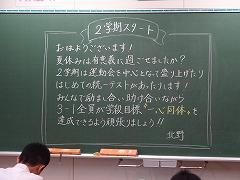 2学期スタート
おはようございます!
夏休みは有意義に過ごせましたか?
2学期は運動会を中心となって盛り上げたり
はじめての統一テストがあったりします!
みんなで励まし合い助け合いながら
3-1全員が学級目標"一心同体"を
達成できるよう頑張りましょう!!
北野